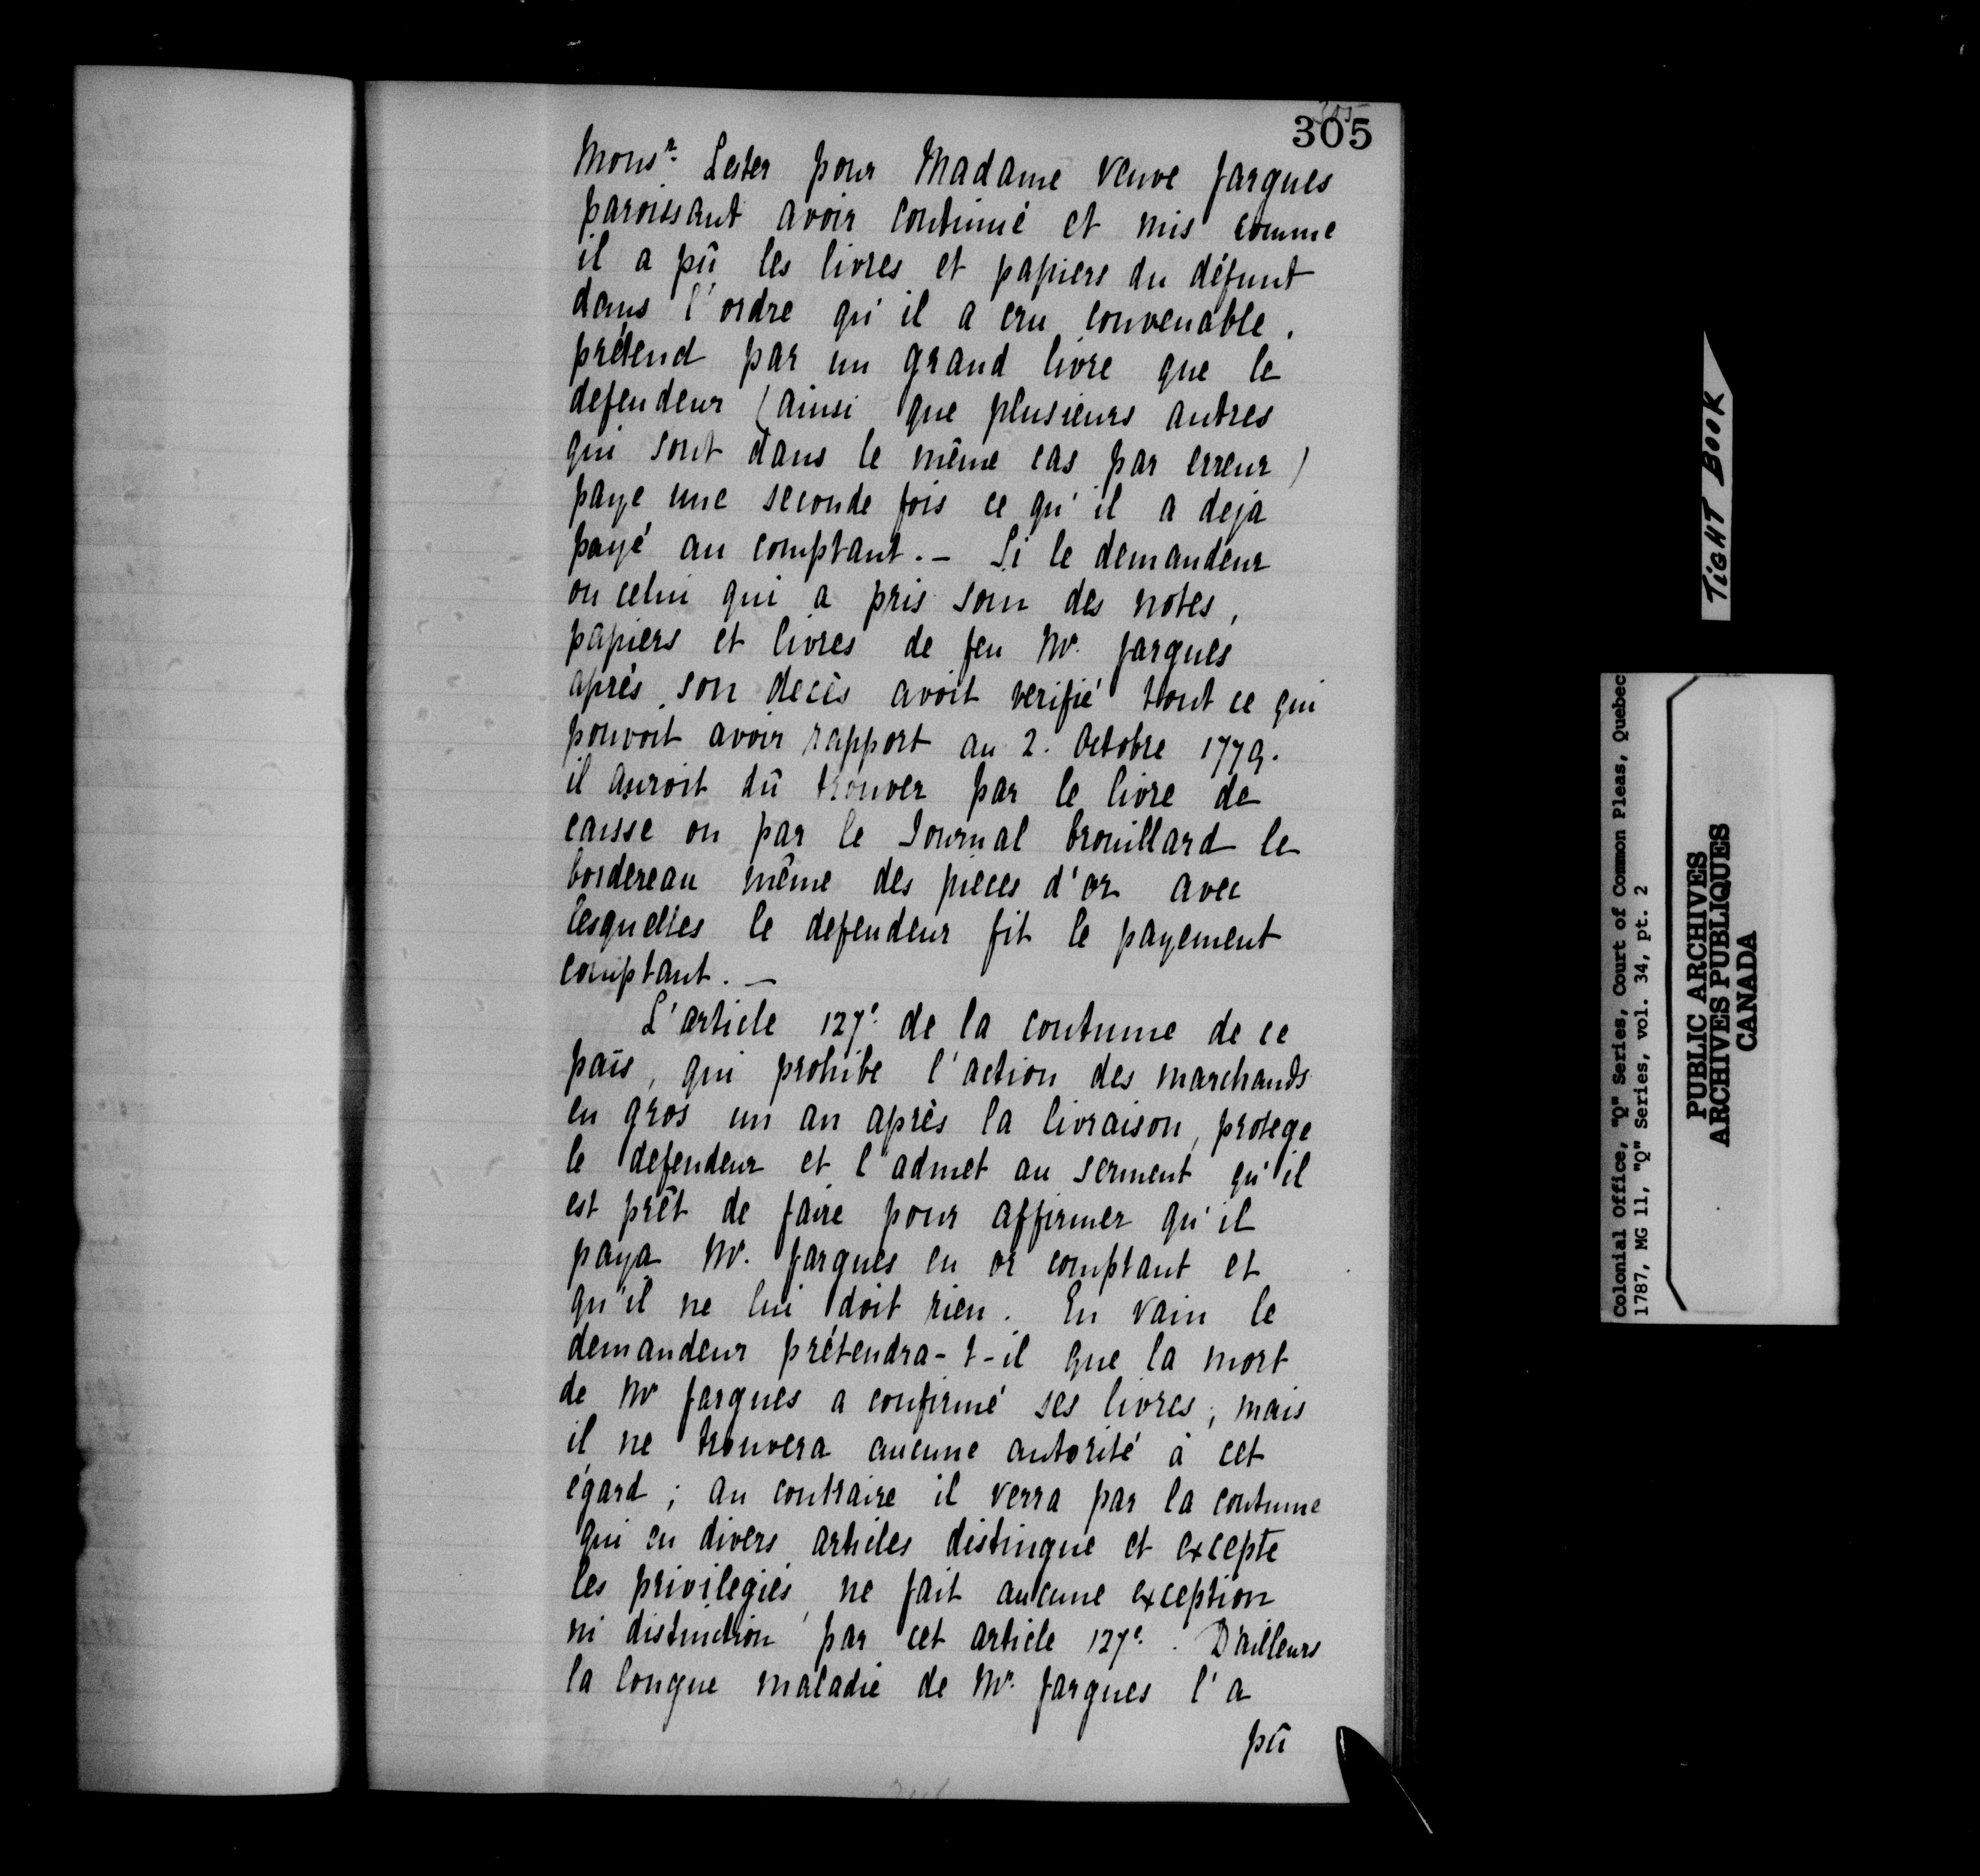 305
305
Monsr. Lester pour Madame veuve fargues
paroissant avoir continué et mis comme
il a pû les livres et papiers du défunt
dans l'ordre qu'il a cru convenable.
prétend par un grand livre que le
defendeur (ainsi que plusieurs autres
qui sont dans le même cas par erreur)
paye une seconde fois ce qu'il a deja
payé au comptant. - Si le demandeur
ou celui qui a pris soin des notes,
papiers et livres de feu Mr. fargues
après son decès avoit verifié tout ce qui
pouvoit avoir rapport au 2. Octobre 1779.
il auroit dû trouver par le livre de
caisse ou par le Journal brouillard le
bordereau même des pieces d'or avec
lesquelles le defendeur fit le payement
comptant. -
L'article 127e. de la coutume de ce
païs, qui prohibe l'action des marchands
en gros un an après la livraison, protege
le defendeur et l'admet au serment qu'il
est prêt de faire pour affirmer qu'il
paya Mr. fargues en or comptant et
qu'il ne lui doit rien. En vain le
demandeur prétendra-t-il que la mort
de Mr fargues a confirmé ses livres; mais
il ne trouvera aucune autorité à cet
égard; au contraire il verra par la coutume
qui en divers articles distingue et excepte
les privilegiés, ne fait aucune exception
ni distinction par cet article 127e. D'ailleurs
la longue maladie de Mr. fargues l'a
pû
TIGHT BOOK
Colonial Office, "Q" Series, Court of Common Pleas, Quebec
1787, MG 11, "Q" Series, vol. 34, pt. 2
PUBLIC ARCHIVES
ARCHIVES PUBLIQUES
CANADA